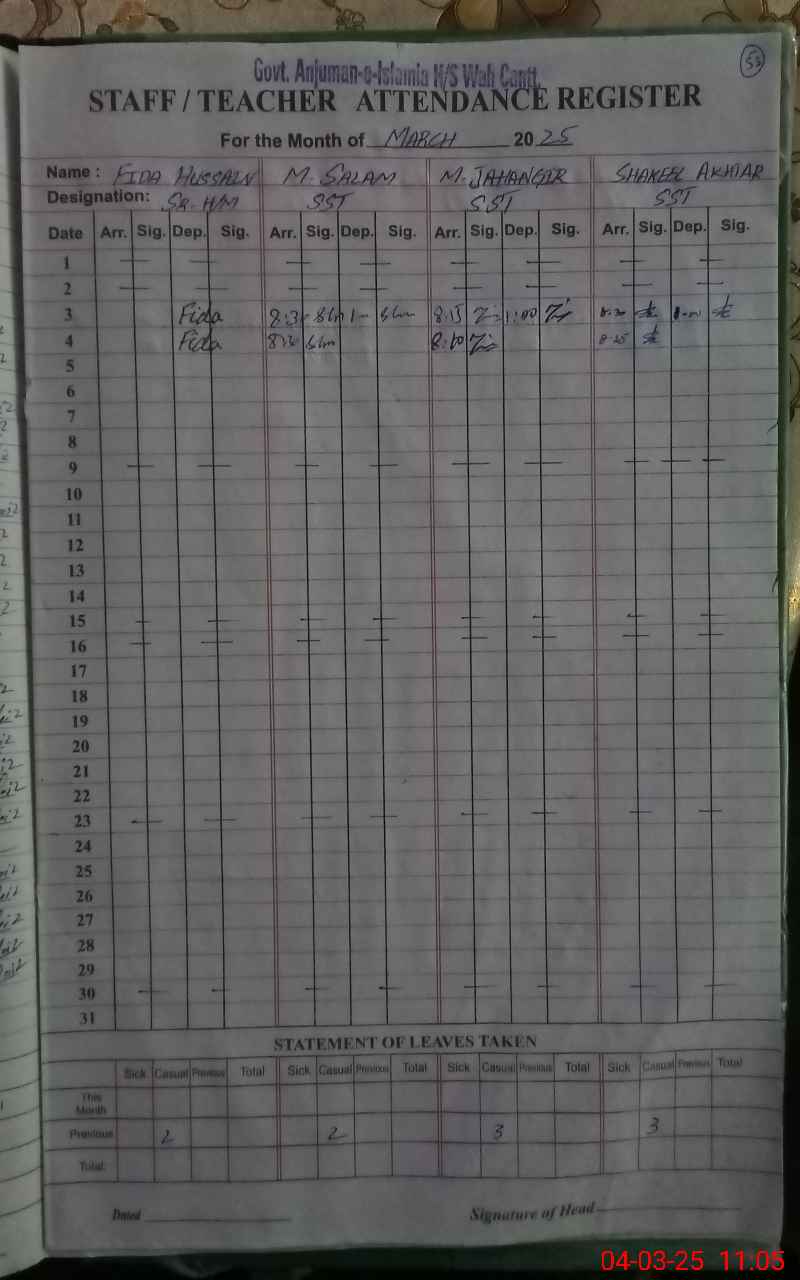 53
Govt. Anjuman-e-Islamia H/S Wah Cantt.
STAFF / TEACHER ATTENDANCE REGISTER
For the Month of MARCH 2025
Name : FIDA HUSSAIN M. SALAM M. JAHANGIR SHAKEEL AKHTAR
Designation: SR. H/M SST SST SST
Date Arr. Sig. Dep. Sig. Arr. Sig. Dep. Sig. Arr. Sig. Dep. Sig. Arr. Sig. Dep. Sig.
1 — — — — — — — —
2 — — — — — — — —
3 Fida 8:15 1:00
4 Fida 8:10 8:25
5
6
7
8
9 — — — — — — — — —
10
11
12
13
14
15 — — — — — — — —
16 — — — — — — — —
17
18
19
20
21
22
23 — — — — — — — —
24
25
26
27
28
29
30 — — — — — — — —
31
STATEMENT OF LEAVES TAKEN
Sick Casual Previous Total Sick Casual Previous Total Sick Casual Previous Total Sick Casual Previous Total
This
Month
Previous 2 2 3 3
Total:
Dated Signature of Head
04-03-25 11:05